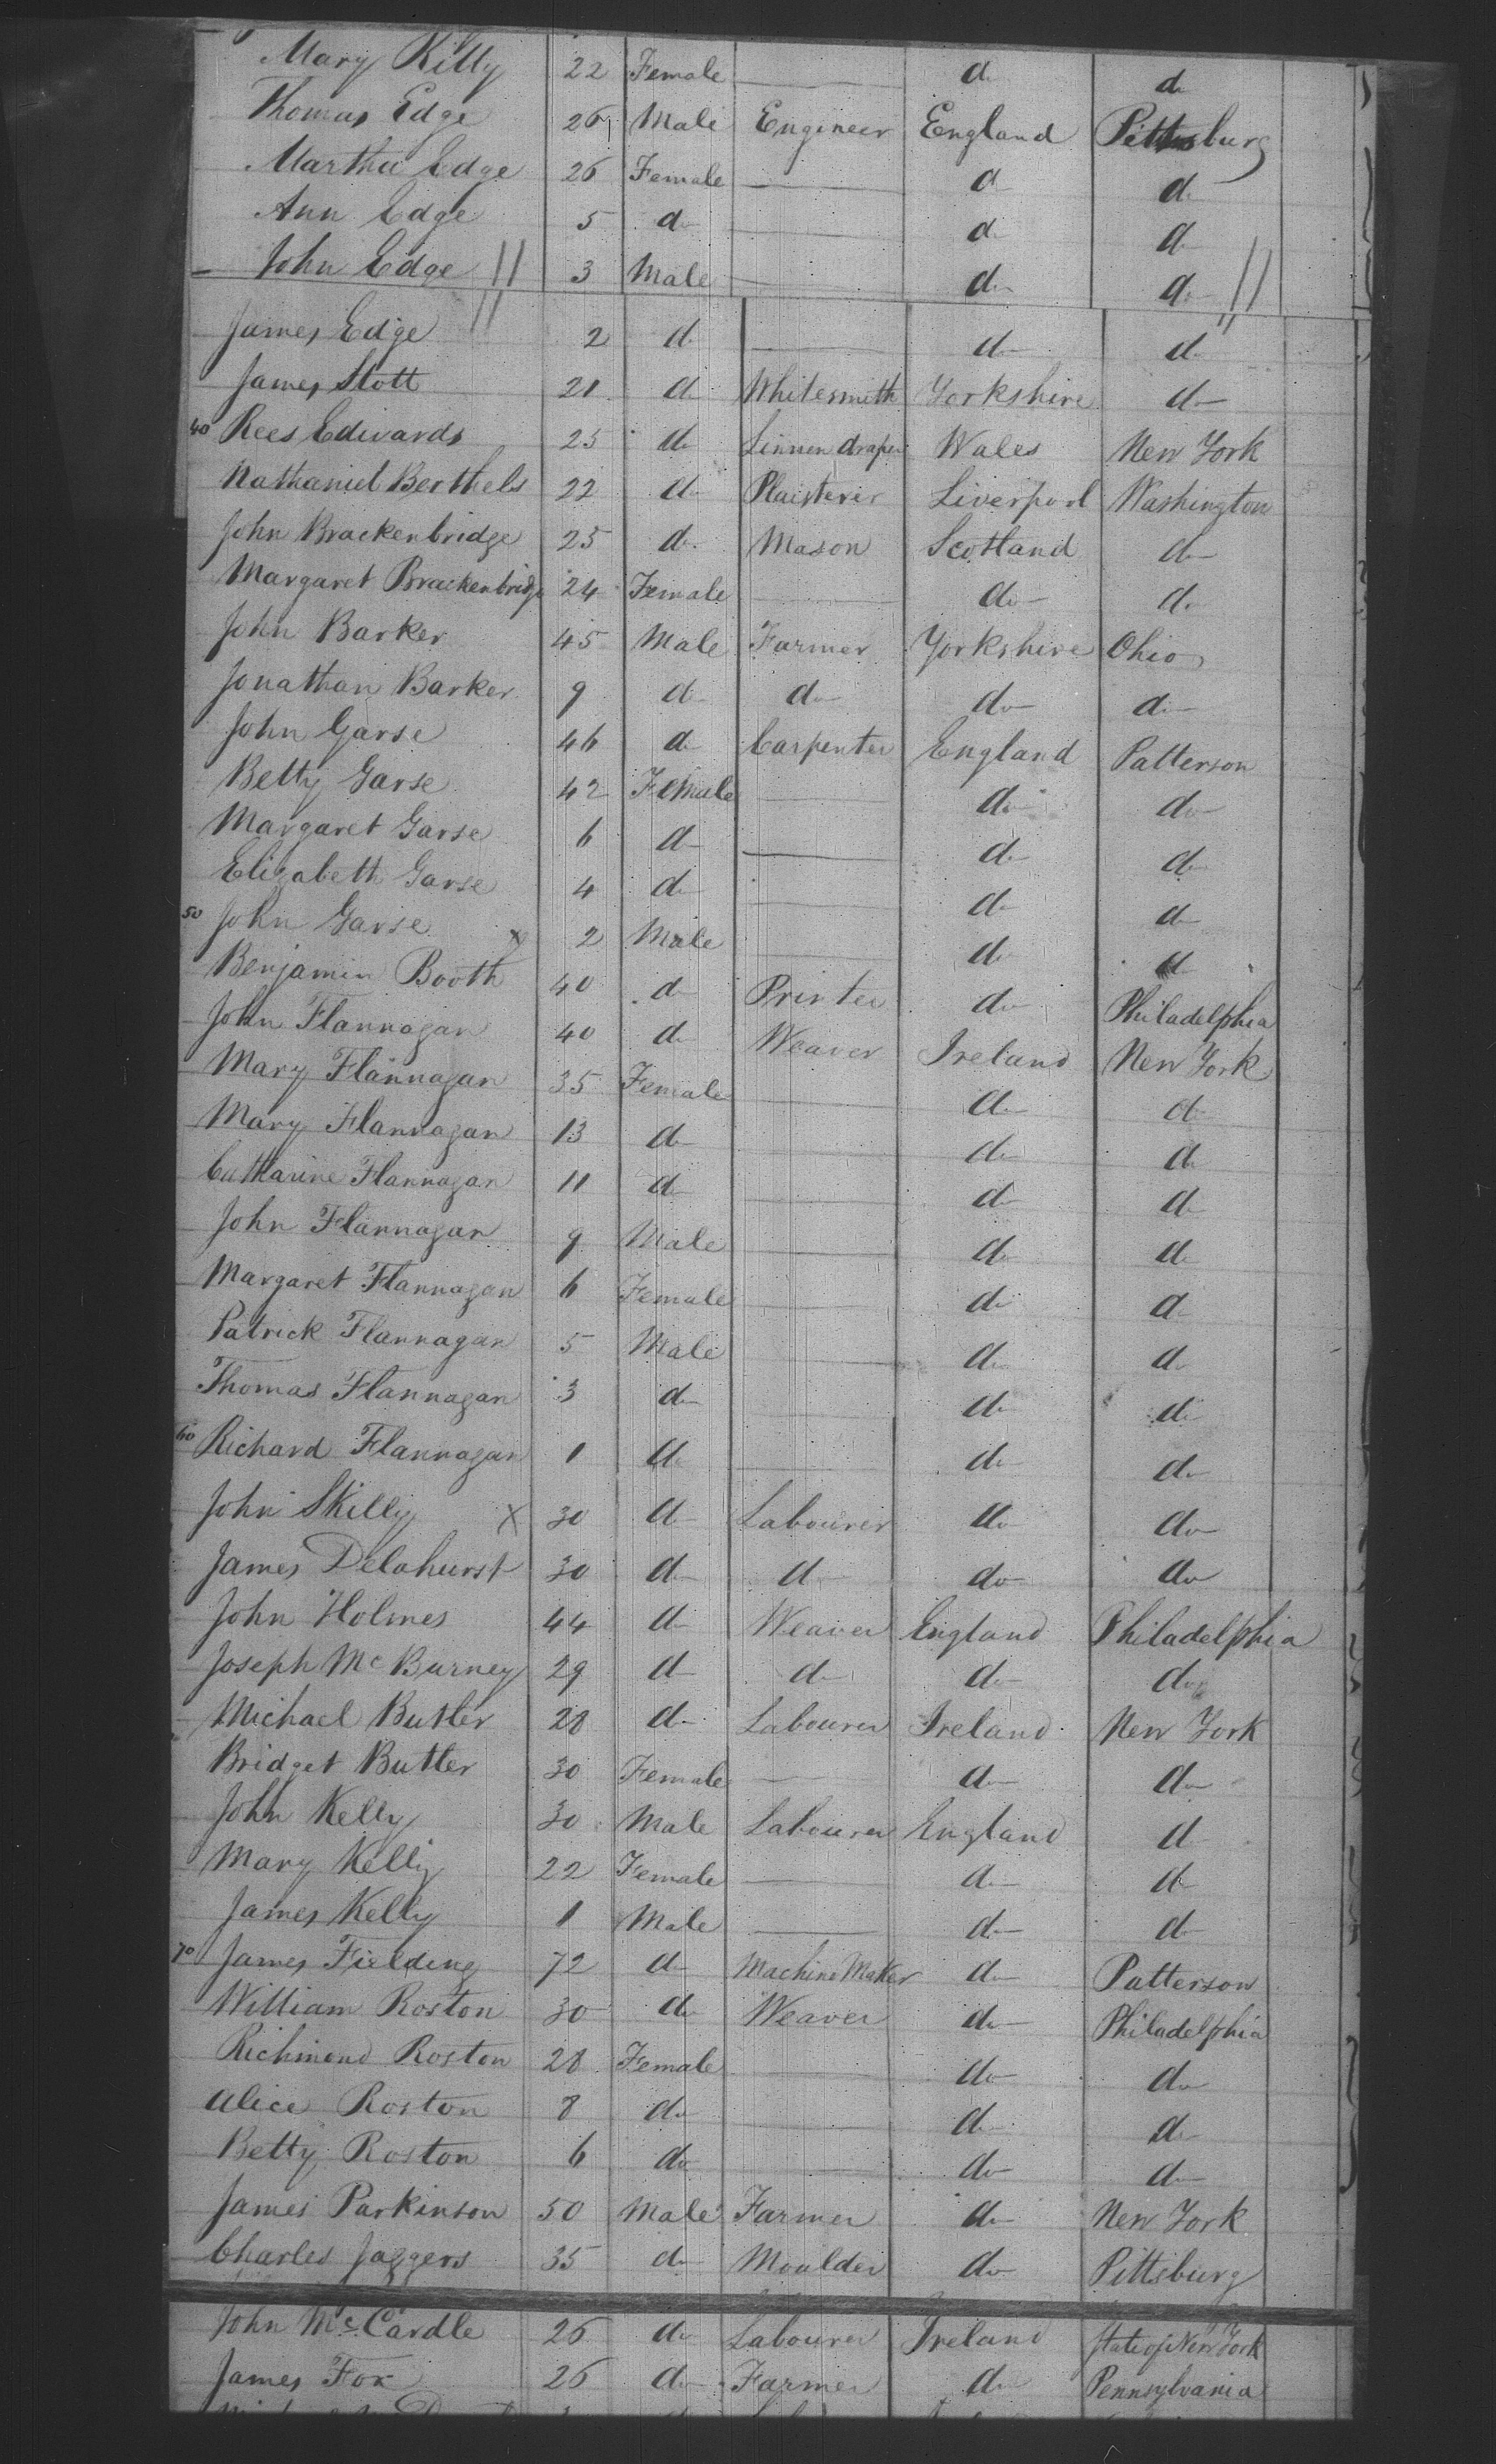 Mary Killy 22 Female d d
Thomas Edge 26 Male Engineer England Pittsburg
Martha Edge 26 Female d d
Ann Edge 5 do d d
John Edge // 3 Male do do //
James Edge 2 d do d
James Stott 21 d Whitesmith Yorkshire do
40 Rees Edwards 25 do Linnen draper Wales New York
Nathaniel Berthels 22 do Plaisterer Liverpool Washington
John Brackenbridge 25 do Mason Scotland do
Margaret Brackenbridge 24 Female do do
John Barker 45 Male Farmer Yorkshire Ohio
Jonathan Barker 9 do do do do
John Garse 46 do Carpenter England Patterson
Betty Garse 42 Female do do
Margaret Garse 6 do do do
Elizabeth Garse 4 do do do
50 John Garse x 2 Male do do
Benjamin Booth 40 do Printer do Philadelphia
John Flannagan 40 do Weaver Ireland New York
Mary Flannagan 35 Female do do
Mary Flannagan 13 do do do
Catharine Flannagan 11 do do do
John Flannagan 9 Male do do
Margaret Flannagan 6 Female do do
Patrick Flannagan 5 Male do do
Thomas Flannagan 3 do do do
60 Richard Flannagan 1 do do do
John Skilly x 30 do Labourer do do
James Delahurst 30 do do do do
John Holmes 44 do Weaver England Philadelphia
Joseph McBurney 29 do do do do
Michael Butler 28 do Labourer Ireland New York
Bridget Butler 30 Female do do
John Kelly 30 Male Labourer England d
Mary Kelly 22 Female do do
James Kelly 1 Male do do
70 James Fielding 72 do Machine Maker do Patterson
William Roston 30 do Weaver do Philadelphia
Richmond Roston 28 Female do do
Alice Roston 8 do do do
Betty Roston 6 do do do
James Parkinson 50 Male Farmer do New York
Charles Jaggers 35 do Moulder do Pittsburg
John McCardle 26 do Labourer Ireland State of New York
James Fox 26 do Farmer do Pennsylvania